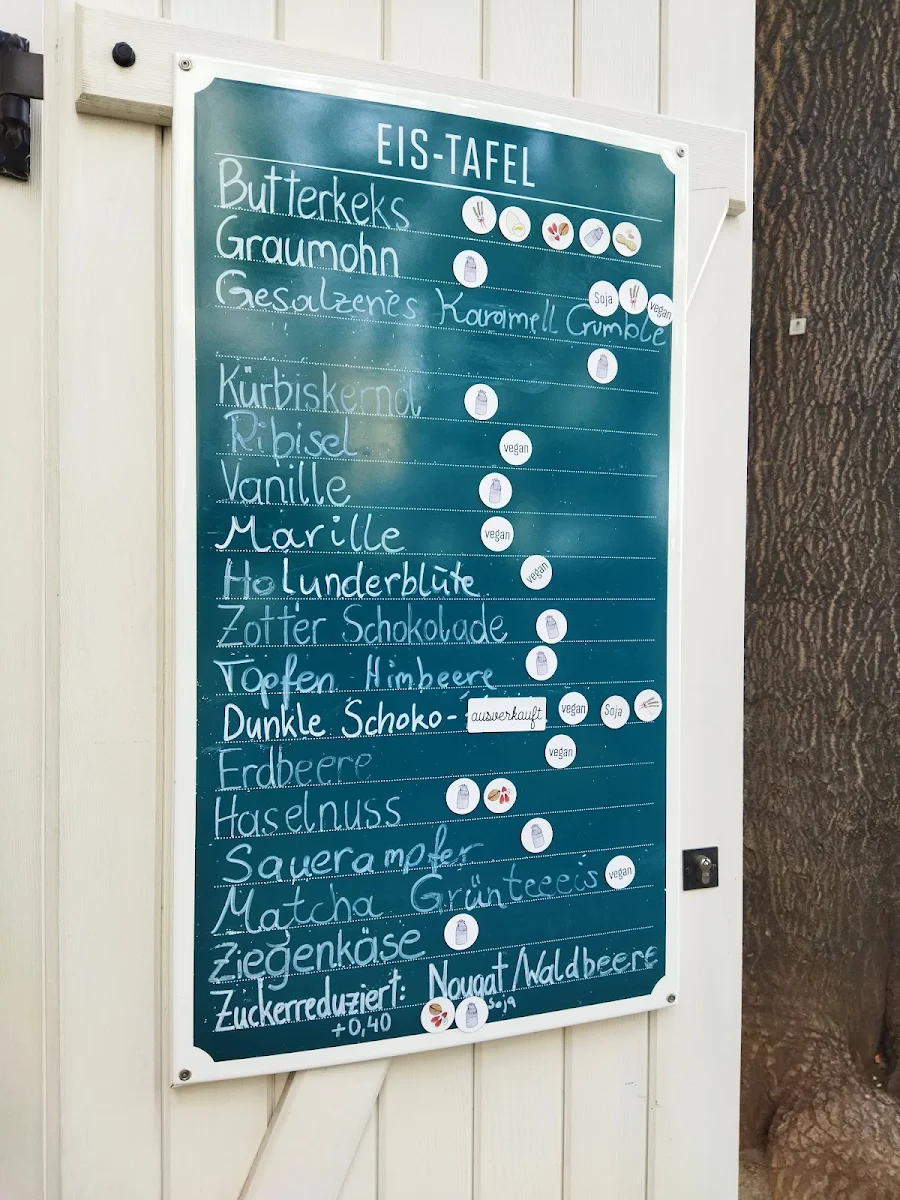 EIS-TAFEL
Butterkeks
Graumohn
Soja vegan
Gesalzenes Karamell Crumble
Ribisel vegan
Vanille
Marille vegan
Holunderblüte vegan
Zotter Schokolade
Topfen Himbeere
Dunkle Schoko- ausverkauft vegan Soja
Erdbeere vegan
Haselnuss
Sauerampfer
Matcha Grünteeeis vegan
Ziegenkäse
Zuckerreduziert: Nougat/Waldbeere
+0,40 Soja